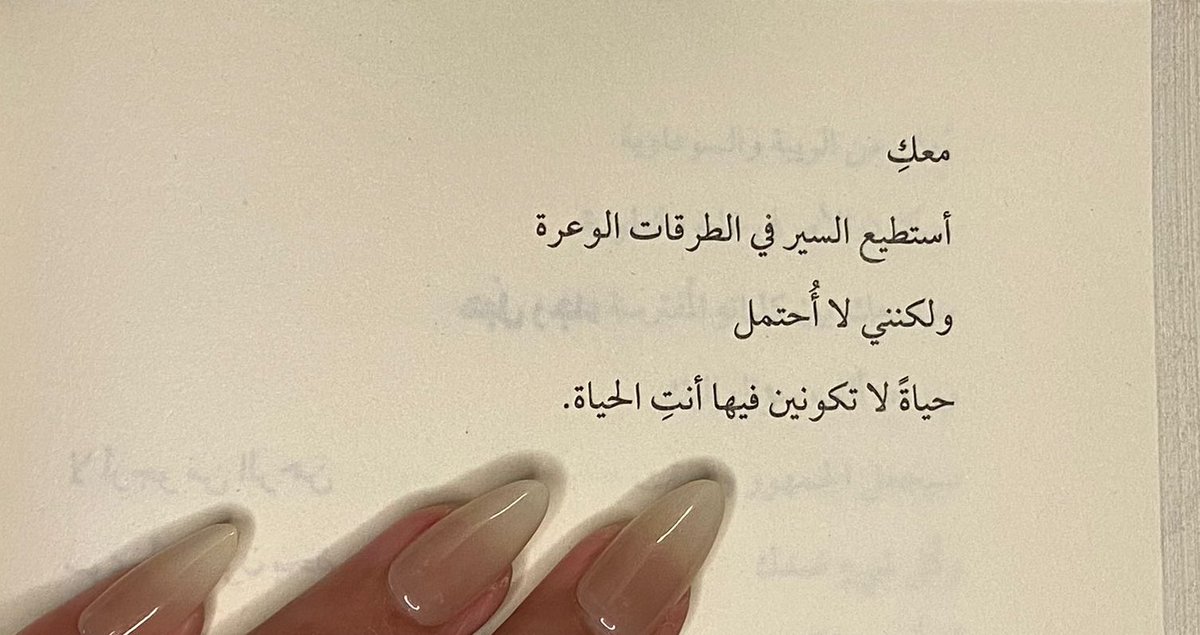 معكِ
أستطيع السير في الطرقات الوعرة
ولكنني لا أُحتمل
حياةً لا تكونين فيها أنتِ الحياة.